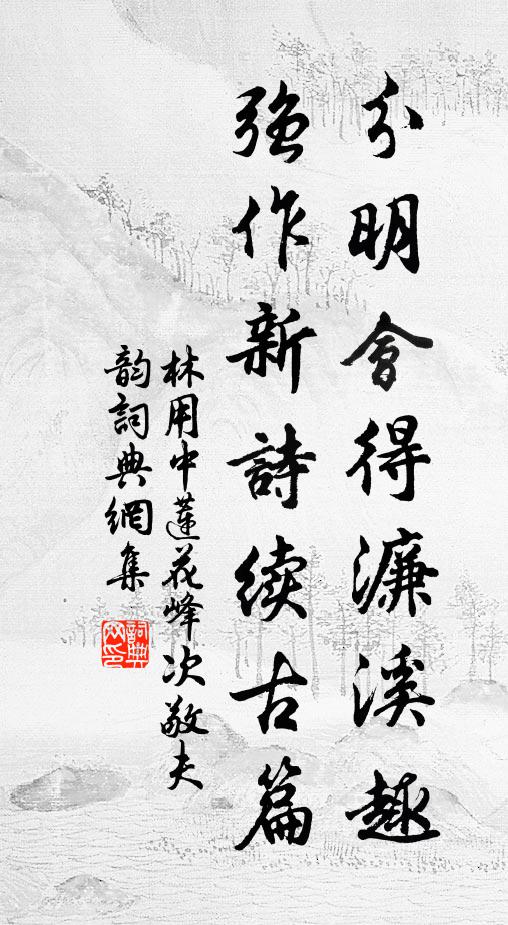 分明會得濂溪趣
強作新詩續古篇
林用中蓮花峰次敬夫
韵詞典網集
詞典網印